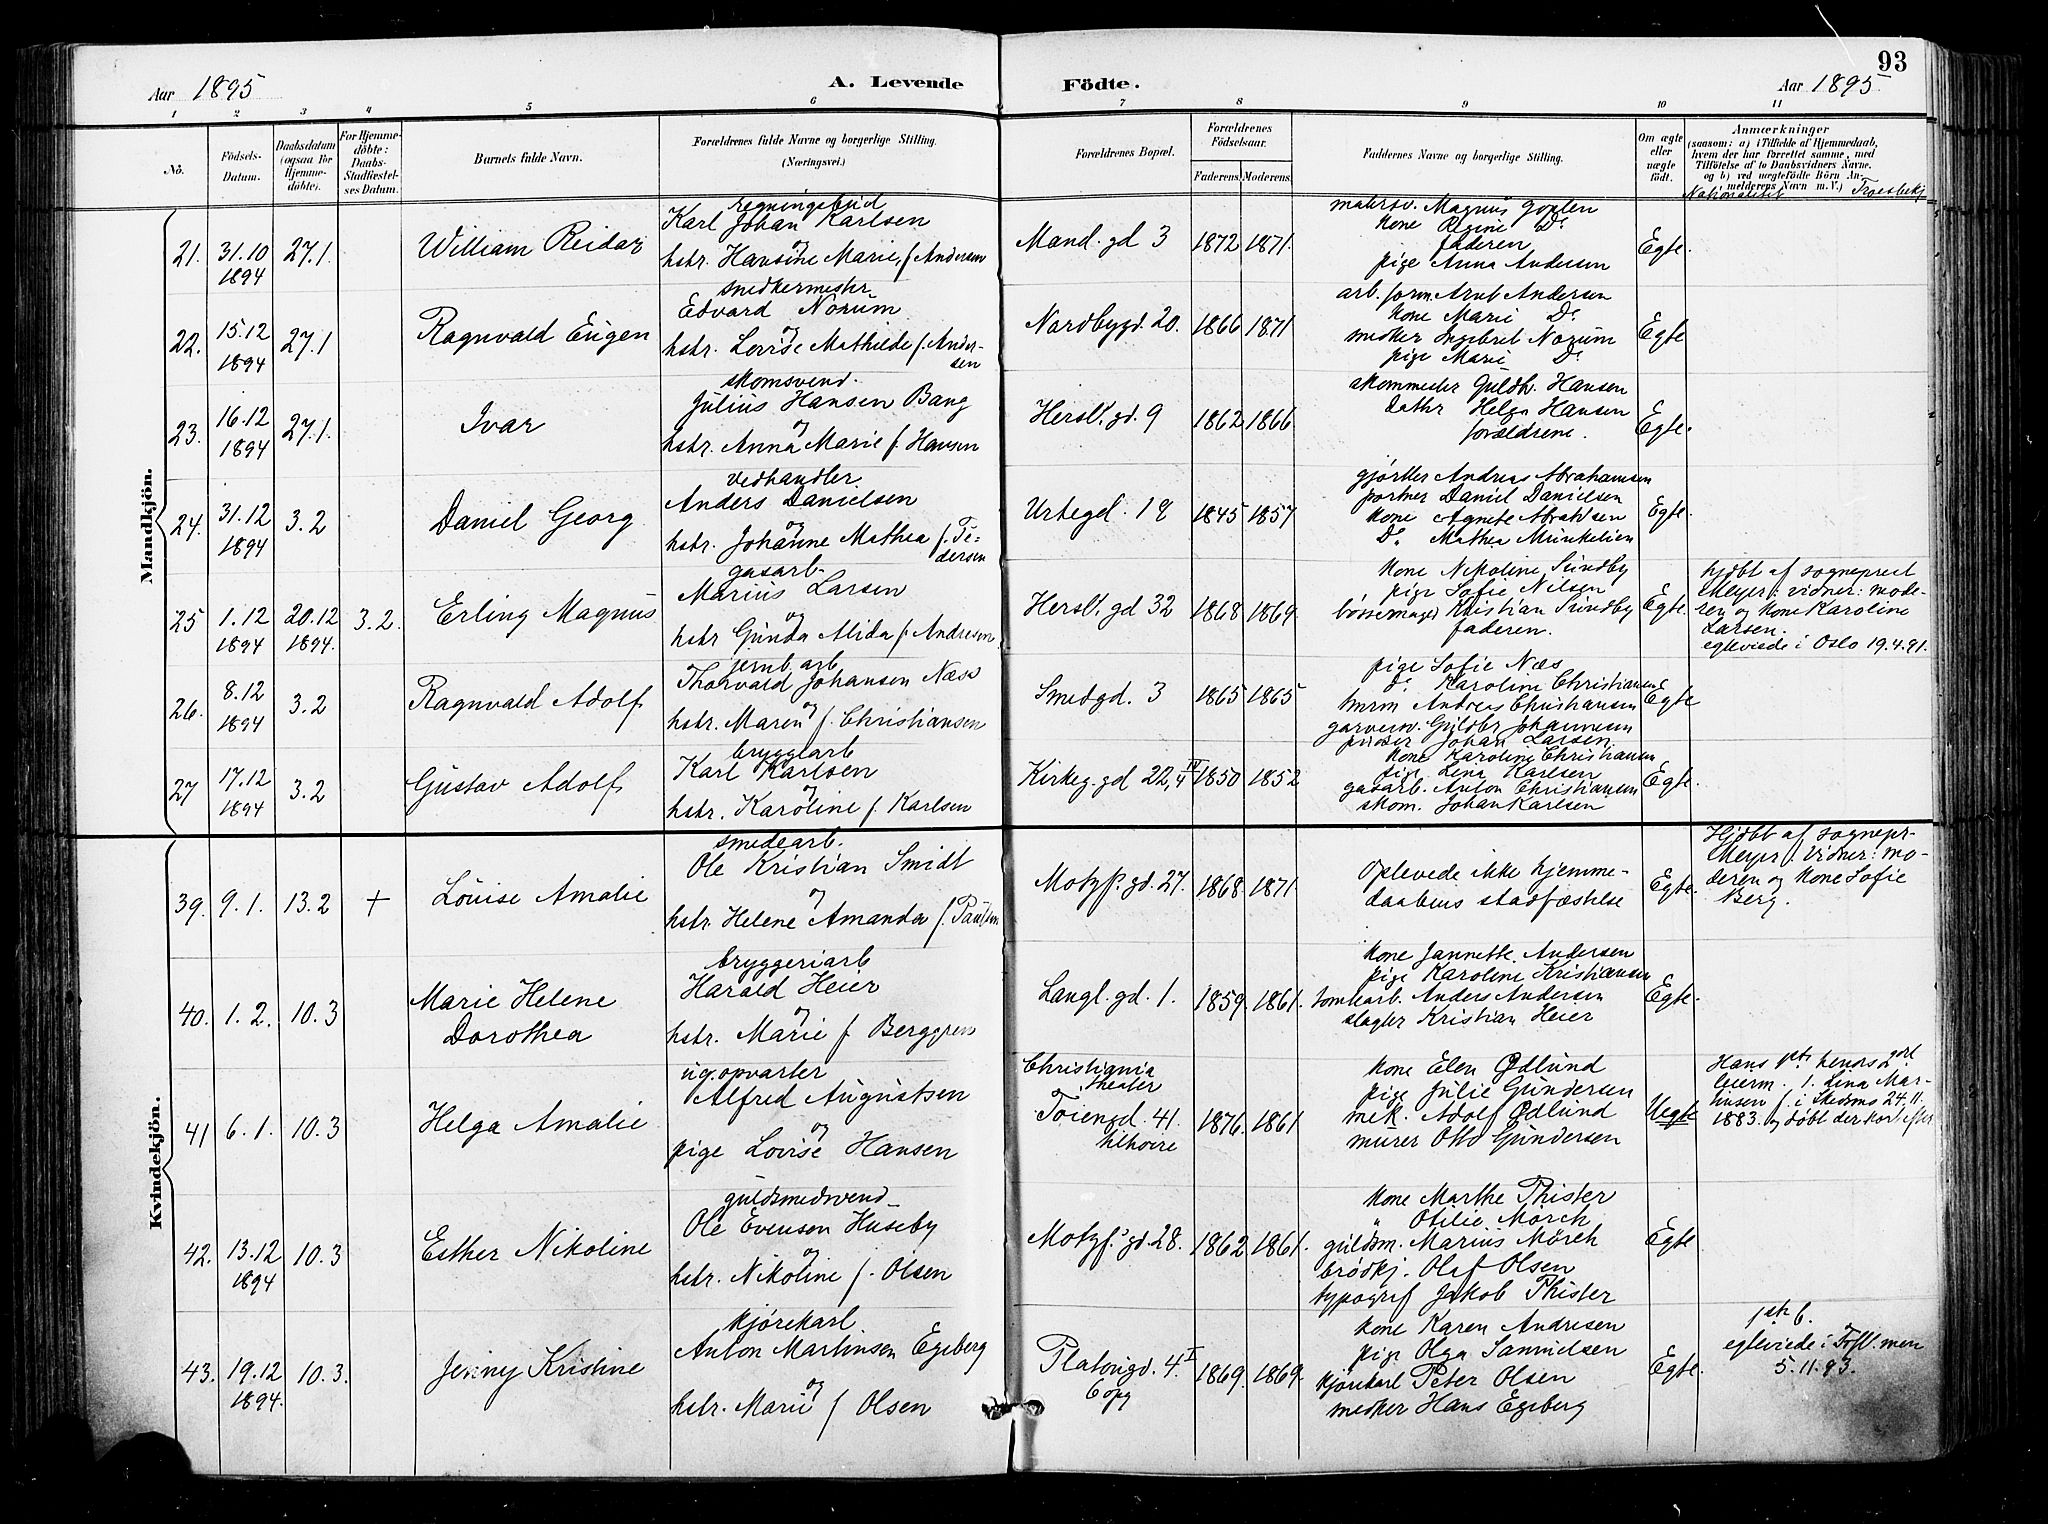 93
Aar 1895
A. Levende Födte.
Aar 1895
1 2 3 4 5 6 7 8 9 10 11
No.
Födsels-Datum.
Daabsdatum (ogsaa for Hjemme-döbte).
For Hjemme-döbte: Daabs-Stadfæstel-ses Datum.
Barnets fulde Navn.
Forældrenes fulde Navne og borgerlige Stilling. (Næringsvei.)
Forældrenes Bopæl.
Forældrenes Födselsaar.
Faderens. Moderens.
Faddernes Navne og borgerlige Stilling.
Om ægte eller uægte födt.
Anmærkninger
(saasom: a) i Tilfælde af Hjemmedaab, hvem der har forrettet samme, med Tilföielse af to Daabsvidners Navne. og b) ved uegtefödte Börn An-melderens Navn m. V.)
Nationalitet Troesbekj
Mandkjön.
21. 31.10 1894 27.1. William Reidar
regningsbud
Karl Johan Karlsen
og
hstr. Hansine Marie f. Andersen
Mand. gd 3 1872 1871.
malersv. Magnus
kone Regine Do
faderen
pige Anna Andersen
Egte.
22. 15.12 1894 27.1 Ragnvald Eugen
snedkermestr
Edvard Norum
og
hstr. Lovise Mathilde f. Ander-
sen
Nordbygd. 20. 1866 1871
arb. form. Arnt Andersen
kone Marie Do
snedker Ingebret Norum
pige Marie Do
Egte
23. 16.12 1894 27.1. Ivar
skomsvend.
Julius Hansen Bang
og
hstr. Anna Marie f. Hansen
Hersl. gd. 9 1862 1866
skommester Guldb. Hansen
datter Helga Hansen
forældrene.
Egte.
24. 31.12 1894 3.2 Daniel Georg
vedhandler
Anders Danielsen
og
hstr. Johanne Mathea f. Pe-
dersen
Urtegd. 18 1845 1857
gjørtler Andreas Abrahamsen
portner Daniel Danielsen
kone Agnete Abrahsen
Do Mathea Munkelien
Egte.
25 1.12 1894 20.12 1894. 3.2. Erling Magnus
gasarb.
Marius Larsen
og
hstr Gunda Alida f. Andresen
Hersl. gd 32 1868 1869.
kone Nikoline Sundby
pige Sofie Nilsen
bøssemager Kristian Sundby
faderen.
Egte.
hjdbt af sogneprest
Meyer; vidner: mode-
ren og kone Karoline
Larsen.
egteviede i Oslo 19.4.91.
26. 8.12 1894 3.2 Ragnvald Adolf
jernb. arb
Thorvald Johansen Næss
og
hstr. Maren f. Christiansen
Smedgd. 3 1865 1865
pige Sofie Næs
Do Karoline Christiansen
tmrm Andreas Christiansen
garversv. Guldbr Johannesen
Johan Larsen
Egte
27 17.12 1894 3.2 Gustav Adolf
bryggiarb
Karl Karlsen
og
hstr. Karoline f. Karlsen
Kirkeg. gd 22, 4 IV 1850 1852
kone Karoline Christiansen
pige Lina Karlsen
gasarb. Anton Christiansen
skom. Johan Karlsen
Egte.
Kvindekjön.
39. 9.1. 13.2 + Louise Amalie
smedearb.
Ole Kristian Smidt
og
hstr. Helene Amanda f. Paulsen
Motzf. gd. 27. 1868. 1871
Oplevede ikke hjemme-
daabens stadfæstelse
Egte.
Hjdbt af sognepr-
Meyer: vidner: mo-
deren og kone Sofie
Berg.
40. 1.2. 10.3 Marie Helene
Dorothea
bryggeriarb
Harald Heier
og
hstr. Marie f Berggren
Langl. gd. 1. 1859 1861.
kone Jannette Andersen
pige Karoline Kristiansen
tomtearb. Anders Andersen
slagter Kristian Heier
Egte.
41 6.1. 10.3 Helga Amalie
ug. opvarter
Alfred Augustsen
og
pige Lovise Hansen
Christiania
theater
Tøiengd. 41.
1876. 1861
kone Elen Ødlund
pige Julie Gundersen
mek. Adolf Ødlund
murer Otto Gundersen
Uegte
Hans 1ste hendes 2det
leierm. 1. Lina Mar-
f. i 24.11.
1883. og døbt der kort efter
42. 13.12 1894 10.3 Esther Nikoline
guldsmedsvend
Ole Evensen Huseby
og
hstr. Nikoline f. Olsen
Motzf. gd 28. 1862 1861.
kone Marthe Thister
" Otilie Mörch
guldsm. Marius Mörch
brødkj. Olaf Olsen
typograf Jakob Thister
Egte
43. 19.12 1894. 10.3. Jenny Kristine
kjørekarl
Anton Martinsen Egeberg
og
hstr. Marie f Olsen
Platougd. 4 I
6 opg
1869. 1869.
kone Karen Andresen
pige Olga Samuelsen
kjørekarl Peter Olsen
snedker Hans Egeberg
Egte.
1ste b.
egteviede i
5.11.93.